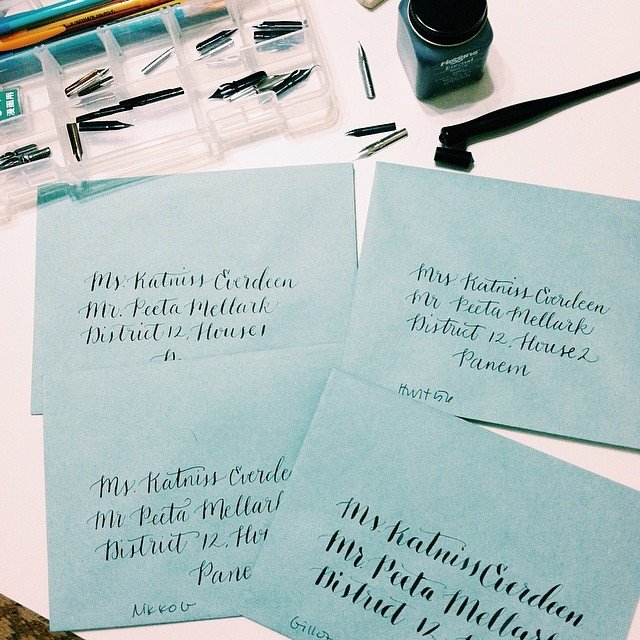 Higgins
Eternal
Ms. Katniss Everdeen
Mr. Peeta Mellark
District 12, House 1
Mrs Katniss Everdeen
Mr Peeta Mellark
District 12, House 2
Panem
Hunt 56
Ms. Katniss Everde
Mr. Peeta Mellark
District 12, Hou
Pane
Nikko G
Ms Katniss Everdeen
Mr Peeta Mellark
District 12